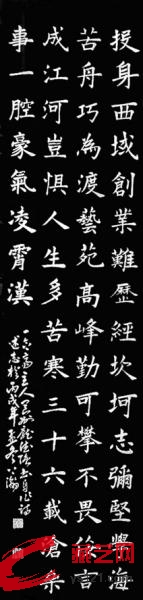 投身西域創業難歷經坎坷志彌堅學海
苦舟巧為渡藝苑高峰勤可攀不畏
成江河豈惧人生多苦寒三十六載滄桑
事一腔豪氣凌霄漢
主人自作詩
述志於丙戌年孟冬